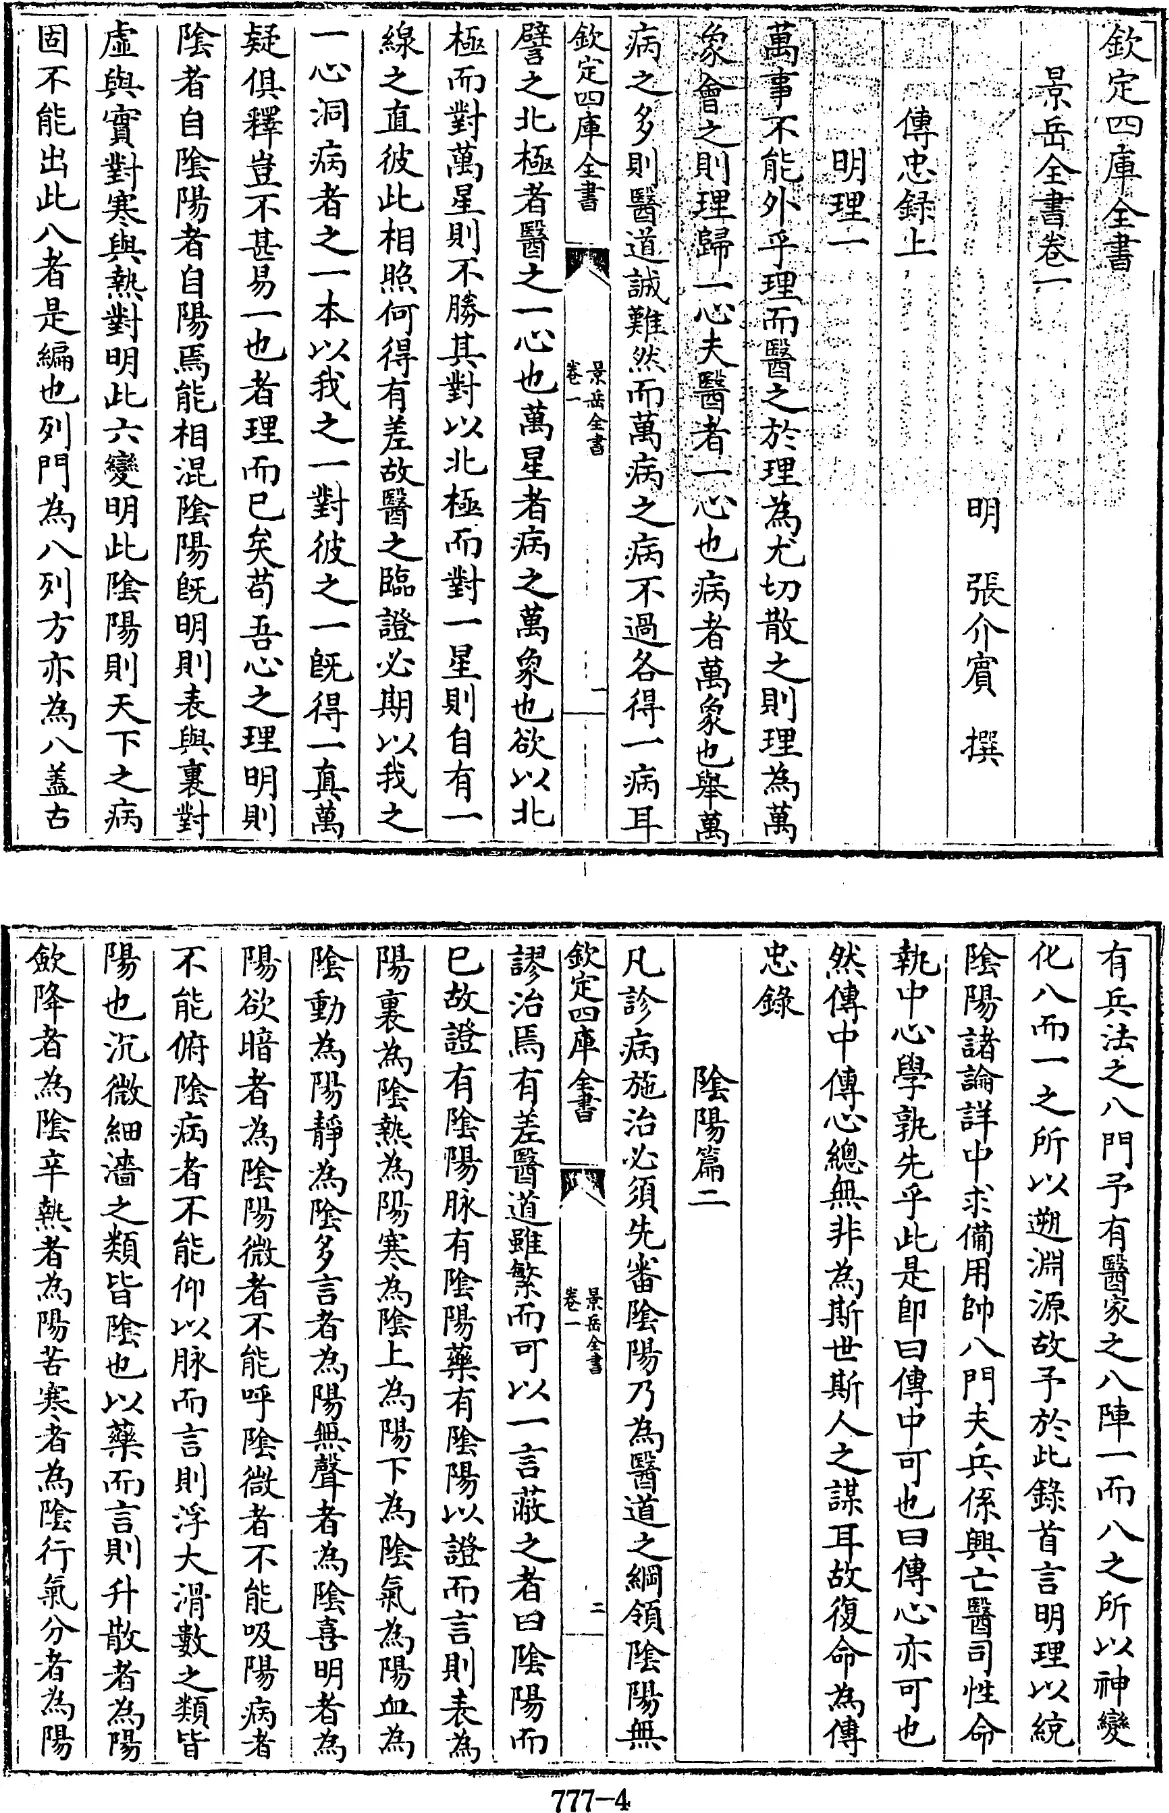 欽定四庫全書
景岳全書卷一
明 張介賓 撰
傳忠録上
明理一
萬事不能外乎理而醫之於理為尤切散之則理為萬
象會之則理歸一心夫醫者一心也病者萬象也舉萬
病之多則醫道誠難然而萬病之病不過各得一病耳
欽定四庫全書
景岳全書
卷一
一
譬之北極者醫之一心也萬星者病之萬象也欲以北
極而對萬星則不勝其對以北極而對一星則自有一
線之直彼此相照何得有差故醫之臨證必期以我之
一心洞病者之一本以我之一對彼之一既得一真萬
疑俱釋豈不甚易一也者理而已矣苟吾心之理明則
陰者自陰陽者自陽焉能相混陰陽既明則表與裏對
虛與實對寒與熱對明此六變明此陰陽則天下之病
固不能出此八者是編也列門為八列方亦為八蓋古
有兵法之八門予有醫家之八陣一而八之所以神變
化八而一之所以遡淵源故予於此錄首言明理以統
陰陽諸論詳中求備用帥八門夫兵係興亡醫司性命
執中心學孰先乎此是即曰傳中可也曰傳心亦可也
然傳中傳心總無非為斯世斯人之謀耳故復命為傳
忠錄
陰陽篇二
凡診病施治必須先審陰陽乃為醫道之綱領陰陽無
欽定四庫全書
景岳全書
卷一
二
謬治焉有差醫道雖繁而可以一言蔽之者曰陰陽而
已故證有陰陽脉有陰陽藥有陰陽以證而言則表為
陽裏為陰熱為陽寒為陰上為陽下為陰氣為陽血為
陰動為陽靜為陰多言者為陽無聲者為陰喜明者為
陽欲暗者為陰陽微者不能呼陰微者不能吸陽病者
不能俯陰病者不能仰以脉而言則浮大滑數之類皆
陽也沉微細濇之類皆陰也以藥而言則升散者為陽
歛降者為陰辛熱者為陽苦寒者為陰行氣分者為陽
777-4